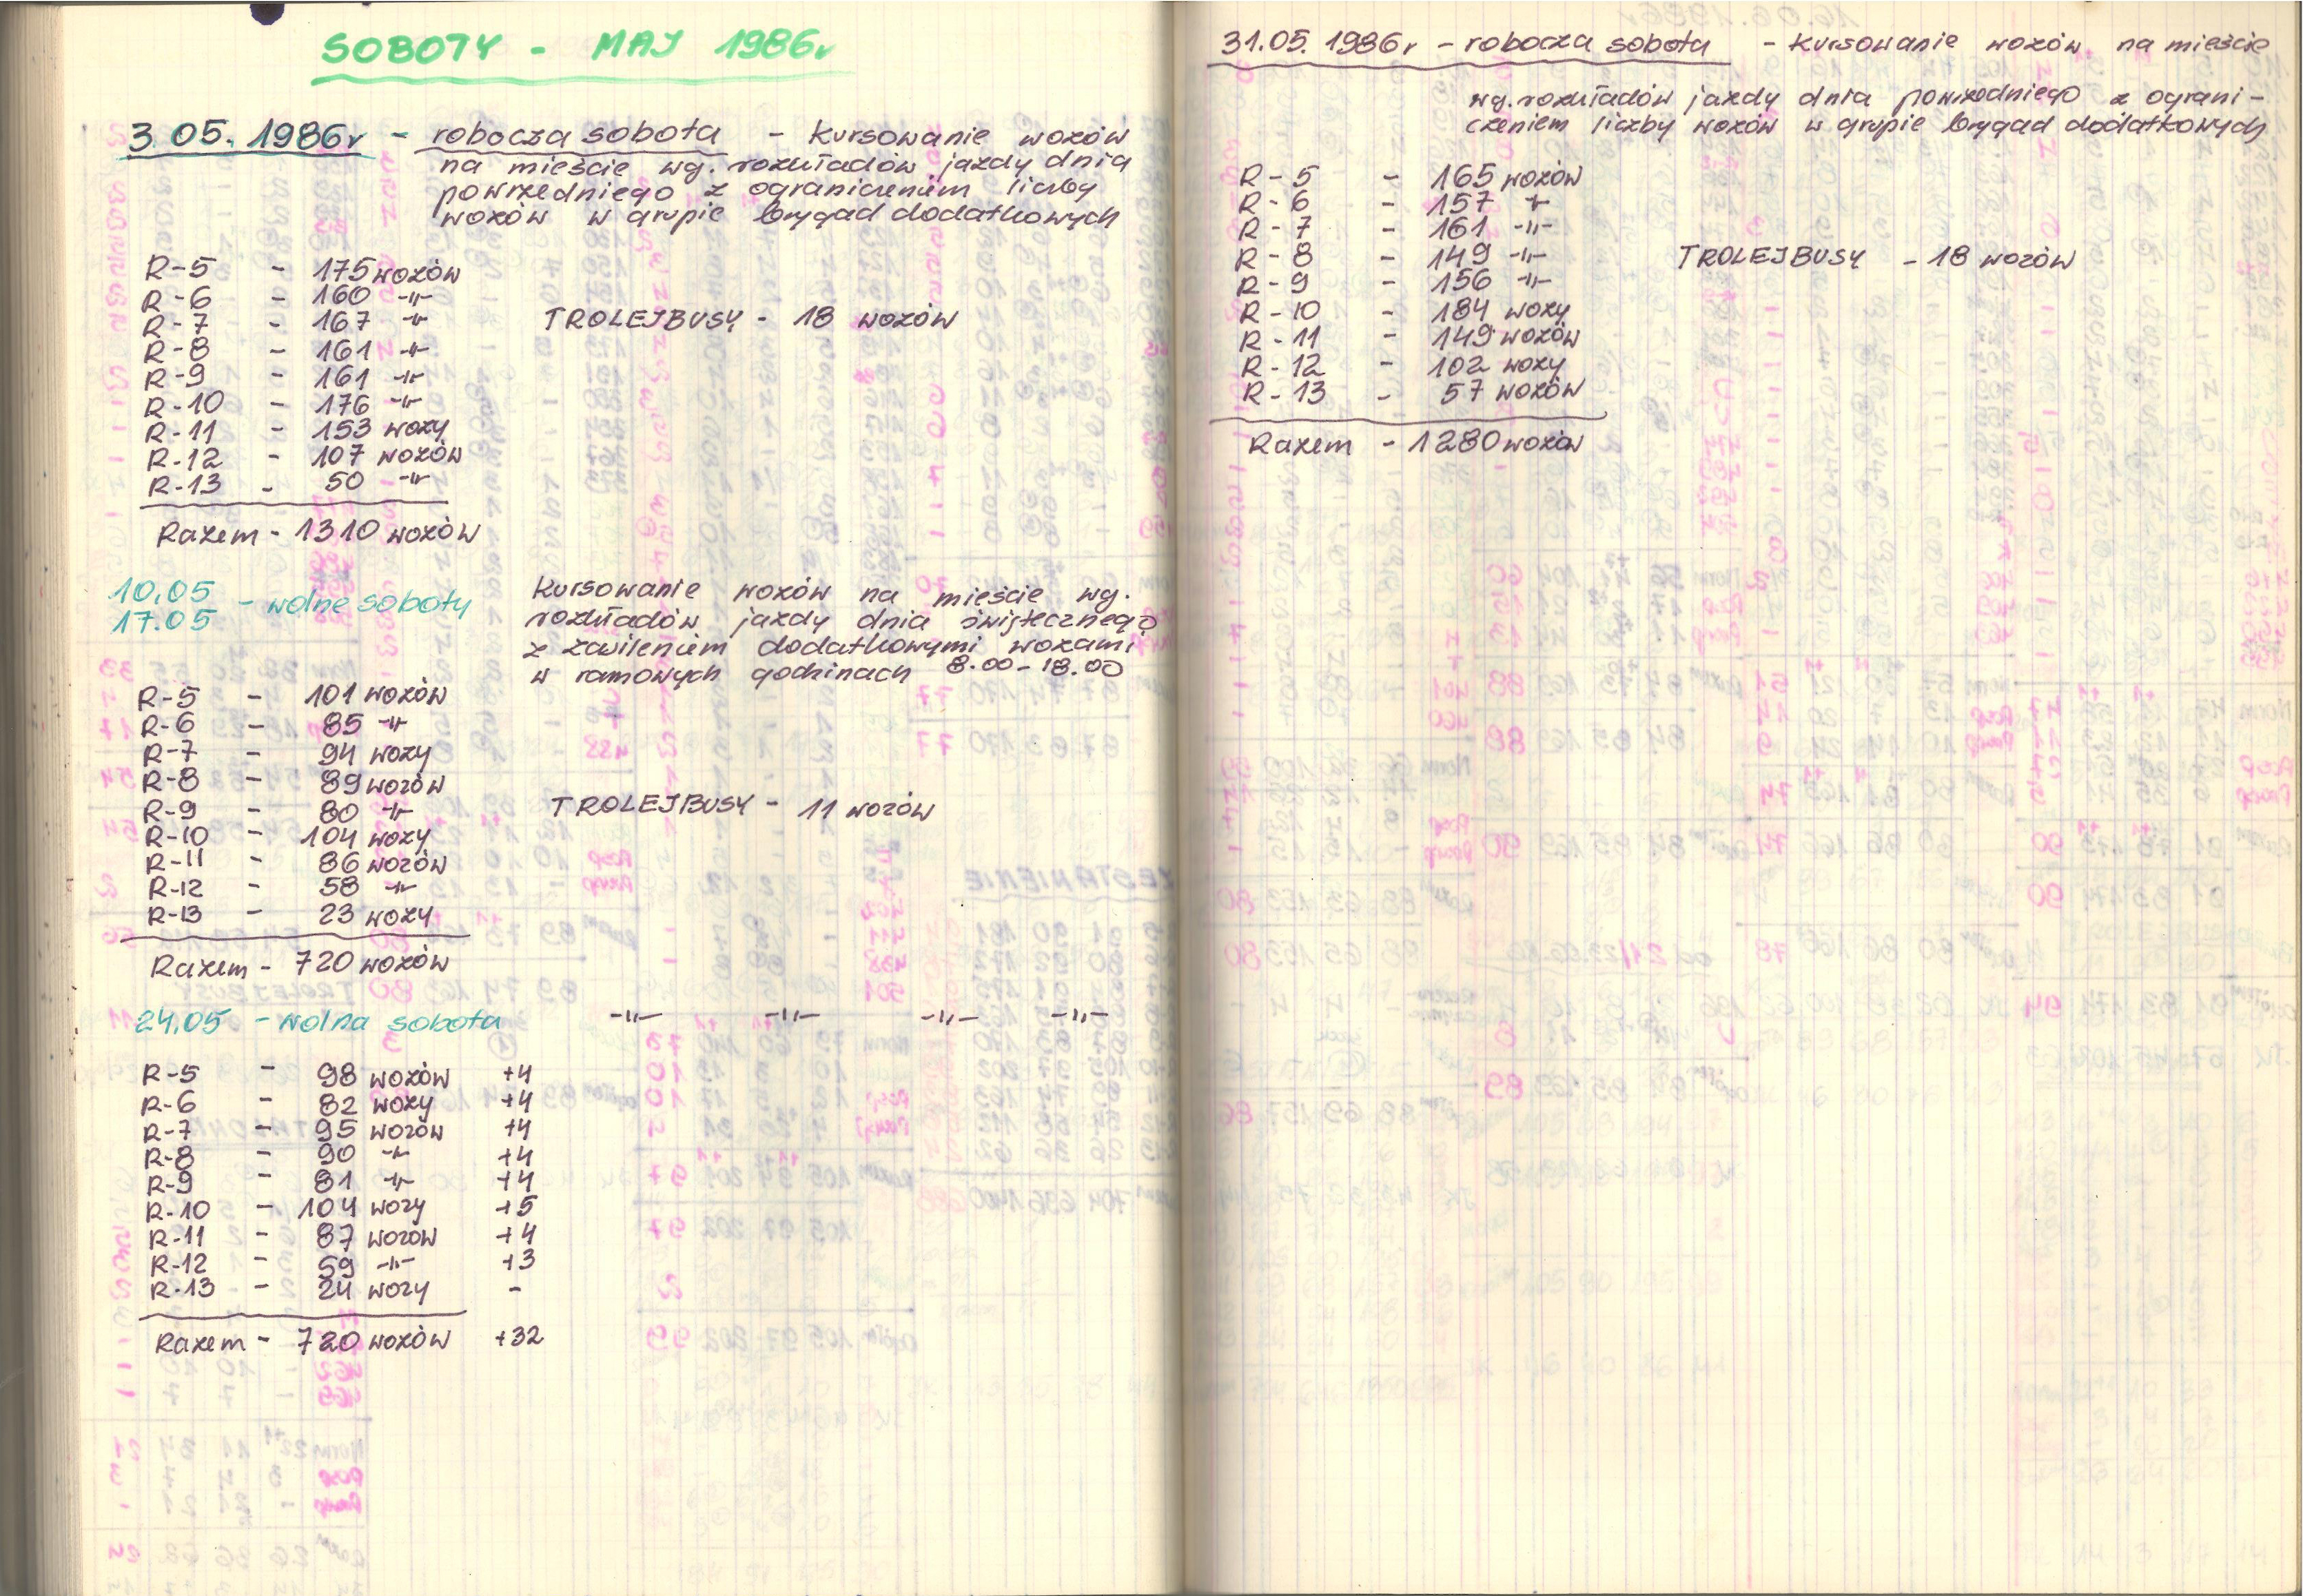 SOBOTY - MAJ 1986r
3.05.1986r - robocza sobota - kursowanie wozów
na mieście wg. rozkładów jazdy dnia
powszedniego z ograniczeniem liczby
wozów w grupie brygad dodatkowych
R-5 - 175 wozów
R-6 - 160 -"-
R-7 - 167 -"-
TROLEJBUSY - 18 wozów
R-8 - 161 -"-
R-9 - 161 -"-
R-10 - 176 -"-
R-11 - 153 wozy
R-12 - 107 wozów
R-13 - 50 -"-
Razem - 1310 wozów
10.05
17.05 - wolne soboty
Kursowanie wozów na mieście wg.
rozkładów jazdy dnia świątecznego
z zasileniem dodatkowymi wozami
w ramowych godzinach 8.00-18.00
R-5 - 101 wozów
R-6 - 85 -"-
R-7 - 94 wozy
R-8 - 89 wozów
R-9 - 80 -"-
TROLEJBUSY - 11 wozów
R-10 - 104 wozy
R-11 - 86 wozów
R-12 - 58 -"-
R-13 - 23 wozy
Razem - 720 wozów
24.05 - wolna sobota -"- -"- -"- -"-
R-5 - 98 wozów +4
R-6 - 82 wozy +4
R-7 - 95 wozów +4
R-8 - 90 -"- +4
R-9 - 81 -"- +4
R-10 - 104 wozy +5
R-11 - 87 wozów +4
R-12 - 59 -"- +3
R-13 - 24 wozy -
Razem - 720 wozów +32
31.05.1986r - robocza sobota - kursowanie wozów na mieście
wg. rozkładów jazdy dnia powszedniego z ograni-
czeniem liczby wozów w grupie brygad dodatkowych
R-5 - 165 wozów
R-6 - 157 -"-
R-7 - 161 -"-
R-8 - 149 -"-
TROLEJBUSY - 18 wozów
R-9 - 156 -"-
R-10 - 184 wozy
R-11 - 149 wozów
R-12 - 102 wozy
R-13 - 57 wozów
Razem - 1280 wozów